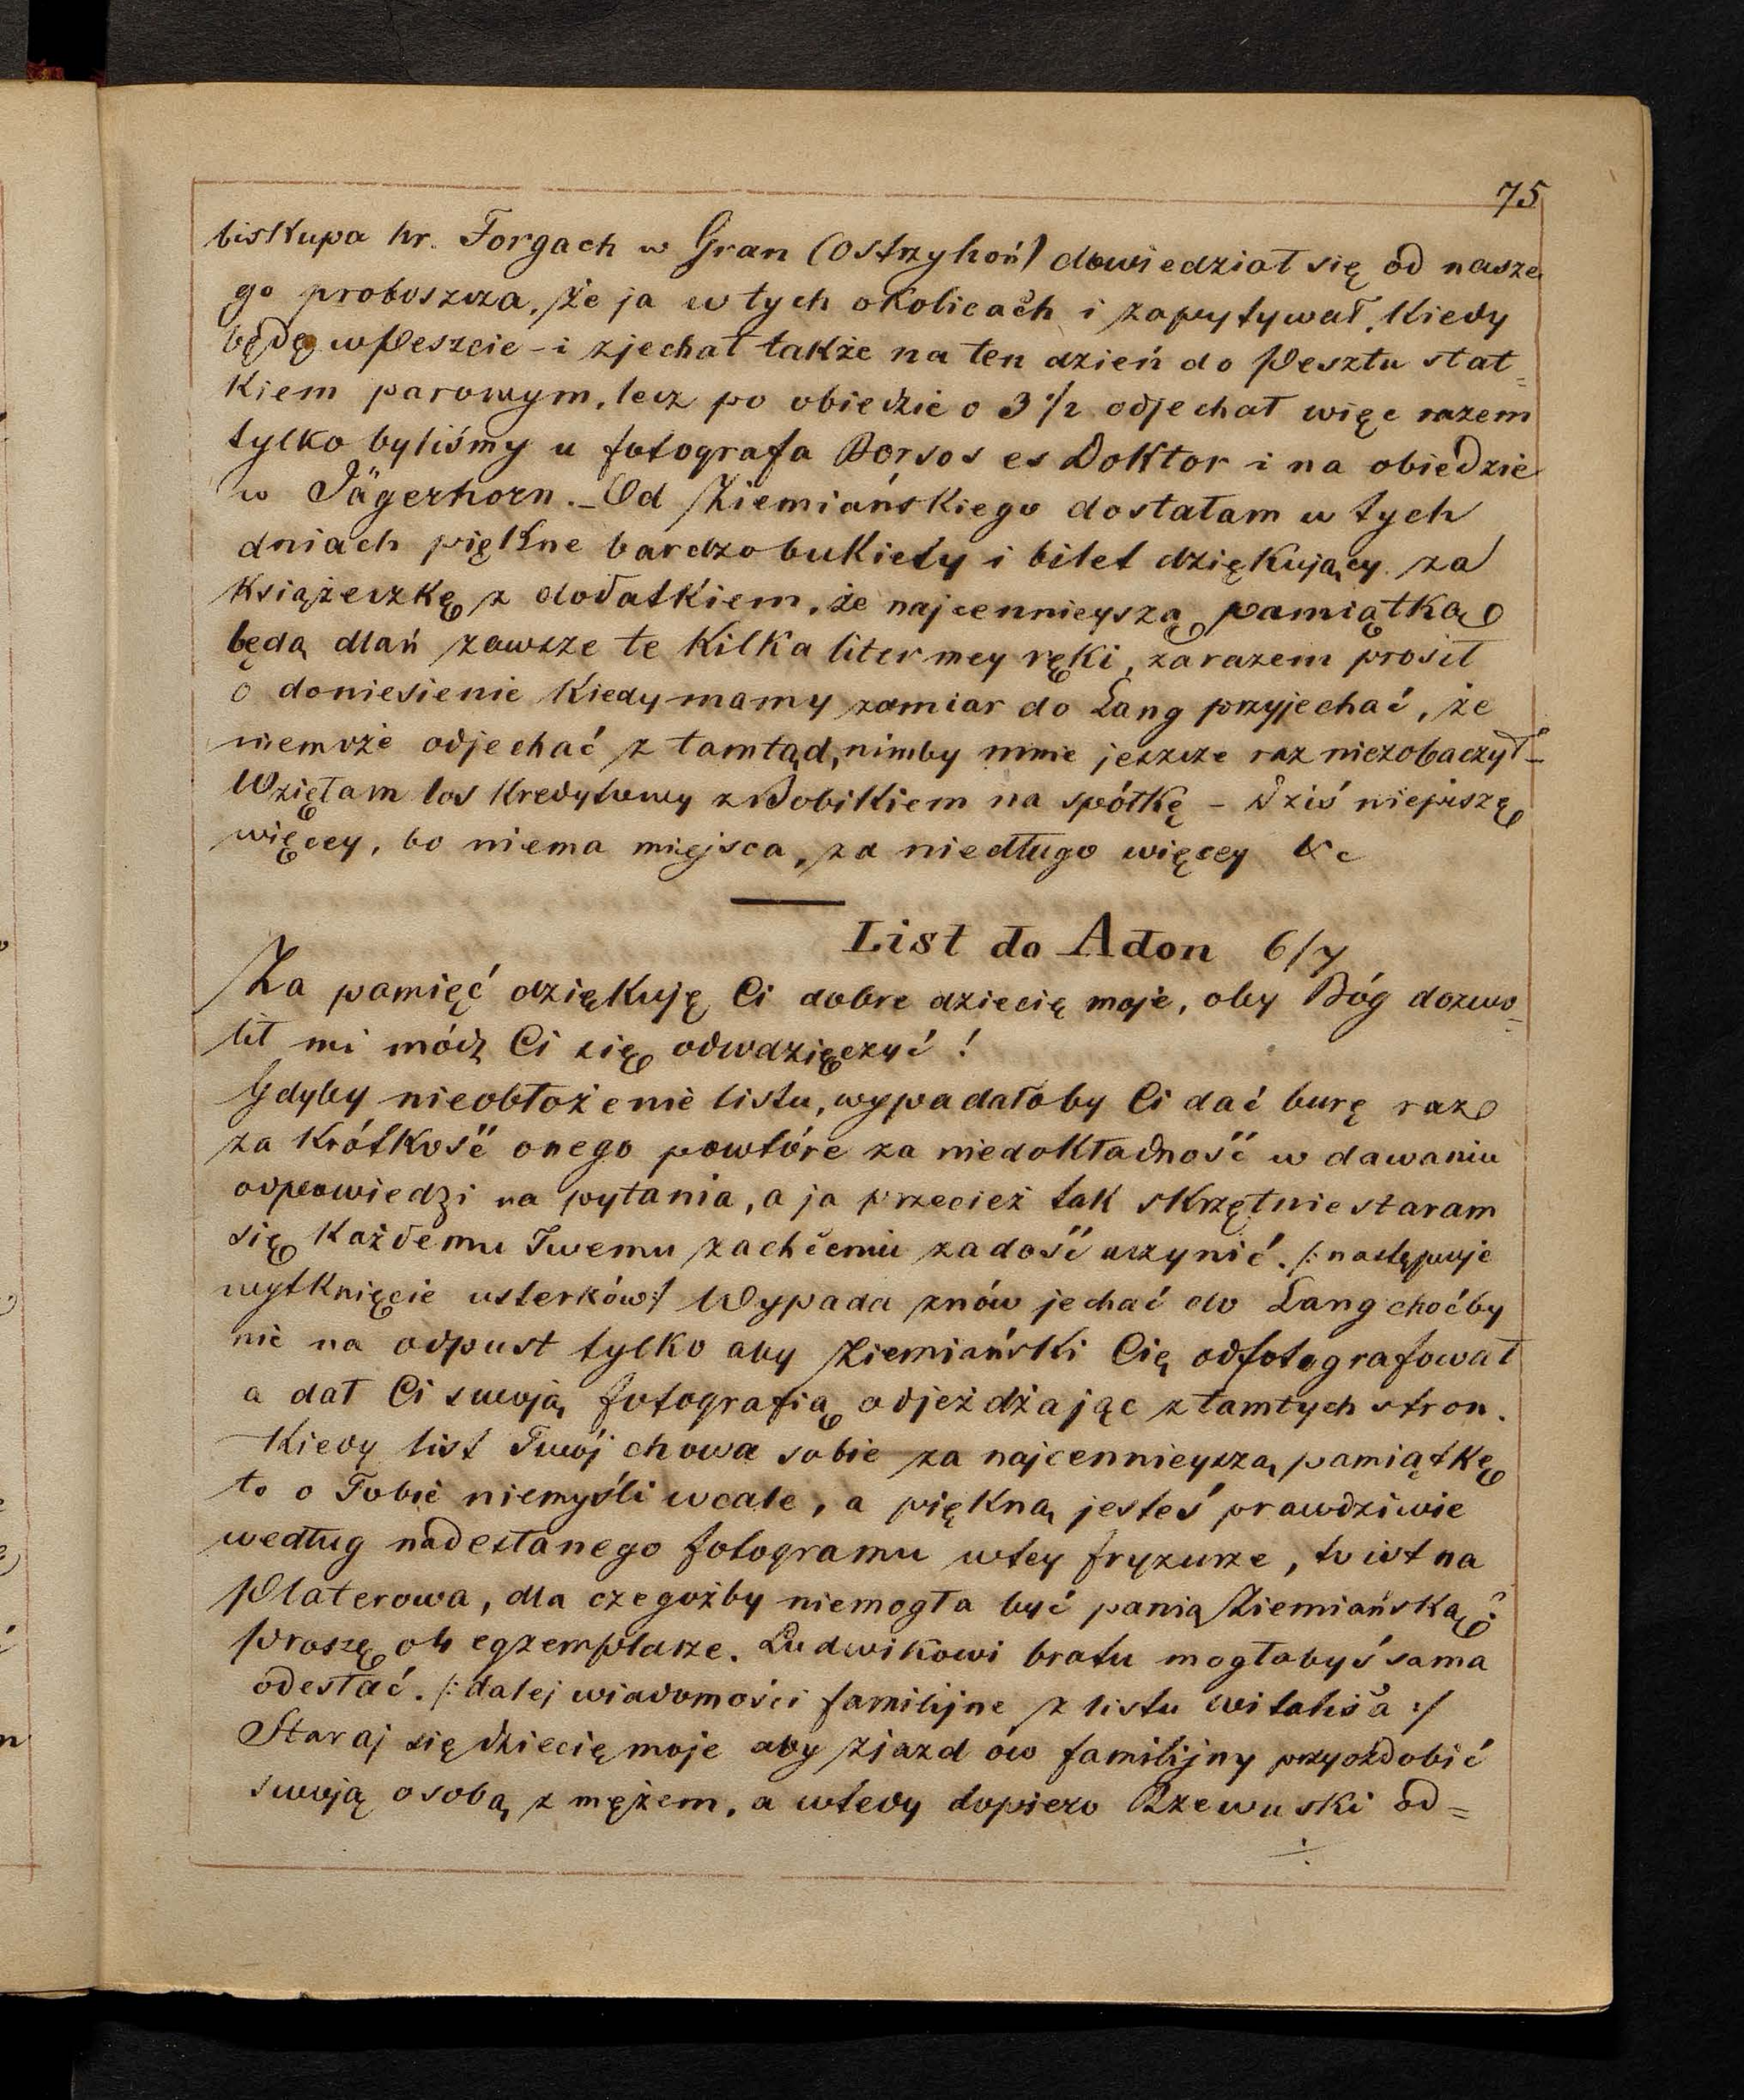 75
biskupa hr. Forgach w Gran (Ostrzyhoń) dowiedział się od nasze
go proboszcza, że ja w tych okolicach i zapytywał, kiedy
będę w Peszcie - i zjechał także na ten dzień do Pesztu stat=
kiem parowym, lecz po obiedzie o 3 1/2 odjechał więc razem
tylko byliśmy u fotografa Borsos es Doktor i na obiedzie
w Jägerhorn. - Od Ziemiańskiego dostałam w tych
dniach piękne bardzo bukiety i bilet dziękujący za
książeczkę z dodatkiem, że najcennieyszą pamiątką
będą dlań zawsze te kilka liter mey ręki, zarazem prosił
o doniesienie kiedy mamy zamiar do Lang przyjechać, że
niemoże odjechać z tamtąd, nimby mnie jeszcze raz niezobaczył -
Wzięłam los kredytowy z Dobikiem na spółkę - Dziś niepiszę
więcey, bo niema miejsca, za niedługo więcey &c
List do Adon 6/7
Za pamięć dziękuję Ci dobre dziecię moje, oby Bóg dozwo=
lił mi módz Ci się odwdzięczyć!
Gdyby nieobłożenie listu, wypadałoby Ci dać burę raz
za krótkość onego powtóre za niedokładność w dawaniu
odpowiedzi na pytania, a ja przecież tak skrzętnie staram
się każdemu Twemu zachceniu zadość uczynić. /: następuje
wytknięcie usterków :/ Wypada znów jechać do Lang choćby
nie na odpust tylko aby Ziemiański Cię odfotografował
a dał Ci swoją fotografią odjeżdżając z tamtych stron.
Kiedy list Twój chowa sobie za najcennieyszą pamiątkę
to o Tobie niemyśli wcale, a piękną jesteś prawdziwie
według nadesłanego fotogramu w tey fryzurze, to istna
Platerowa, dla czegożby niemogła być panią Ziemiańską?
Proszę o 4 egzemplarze. Ludwikowi bratu mogłabyś sama
odesłać. /: dalej wiadomości familijne z listu Witalisa :/
Staraj się dziecię moje aby zjazd ów familijny przyozdobić
swoją osobą z mężem, a wtedy dopiero Rzewuski od=